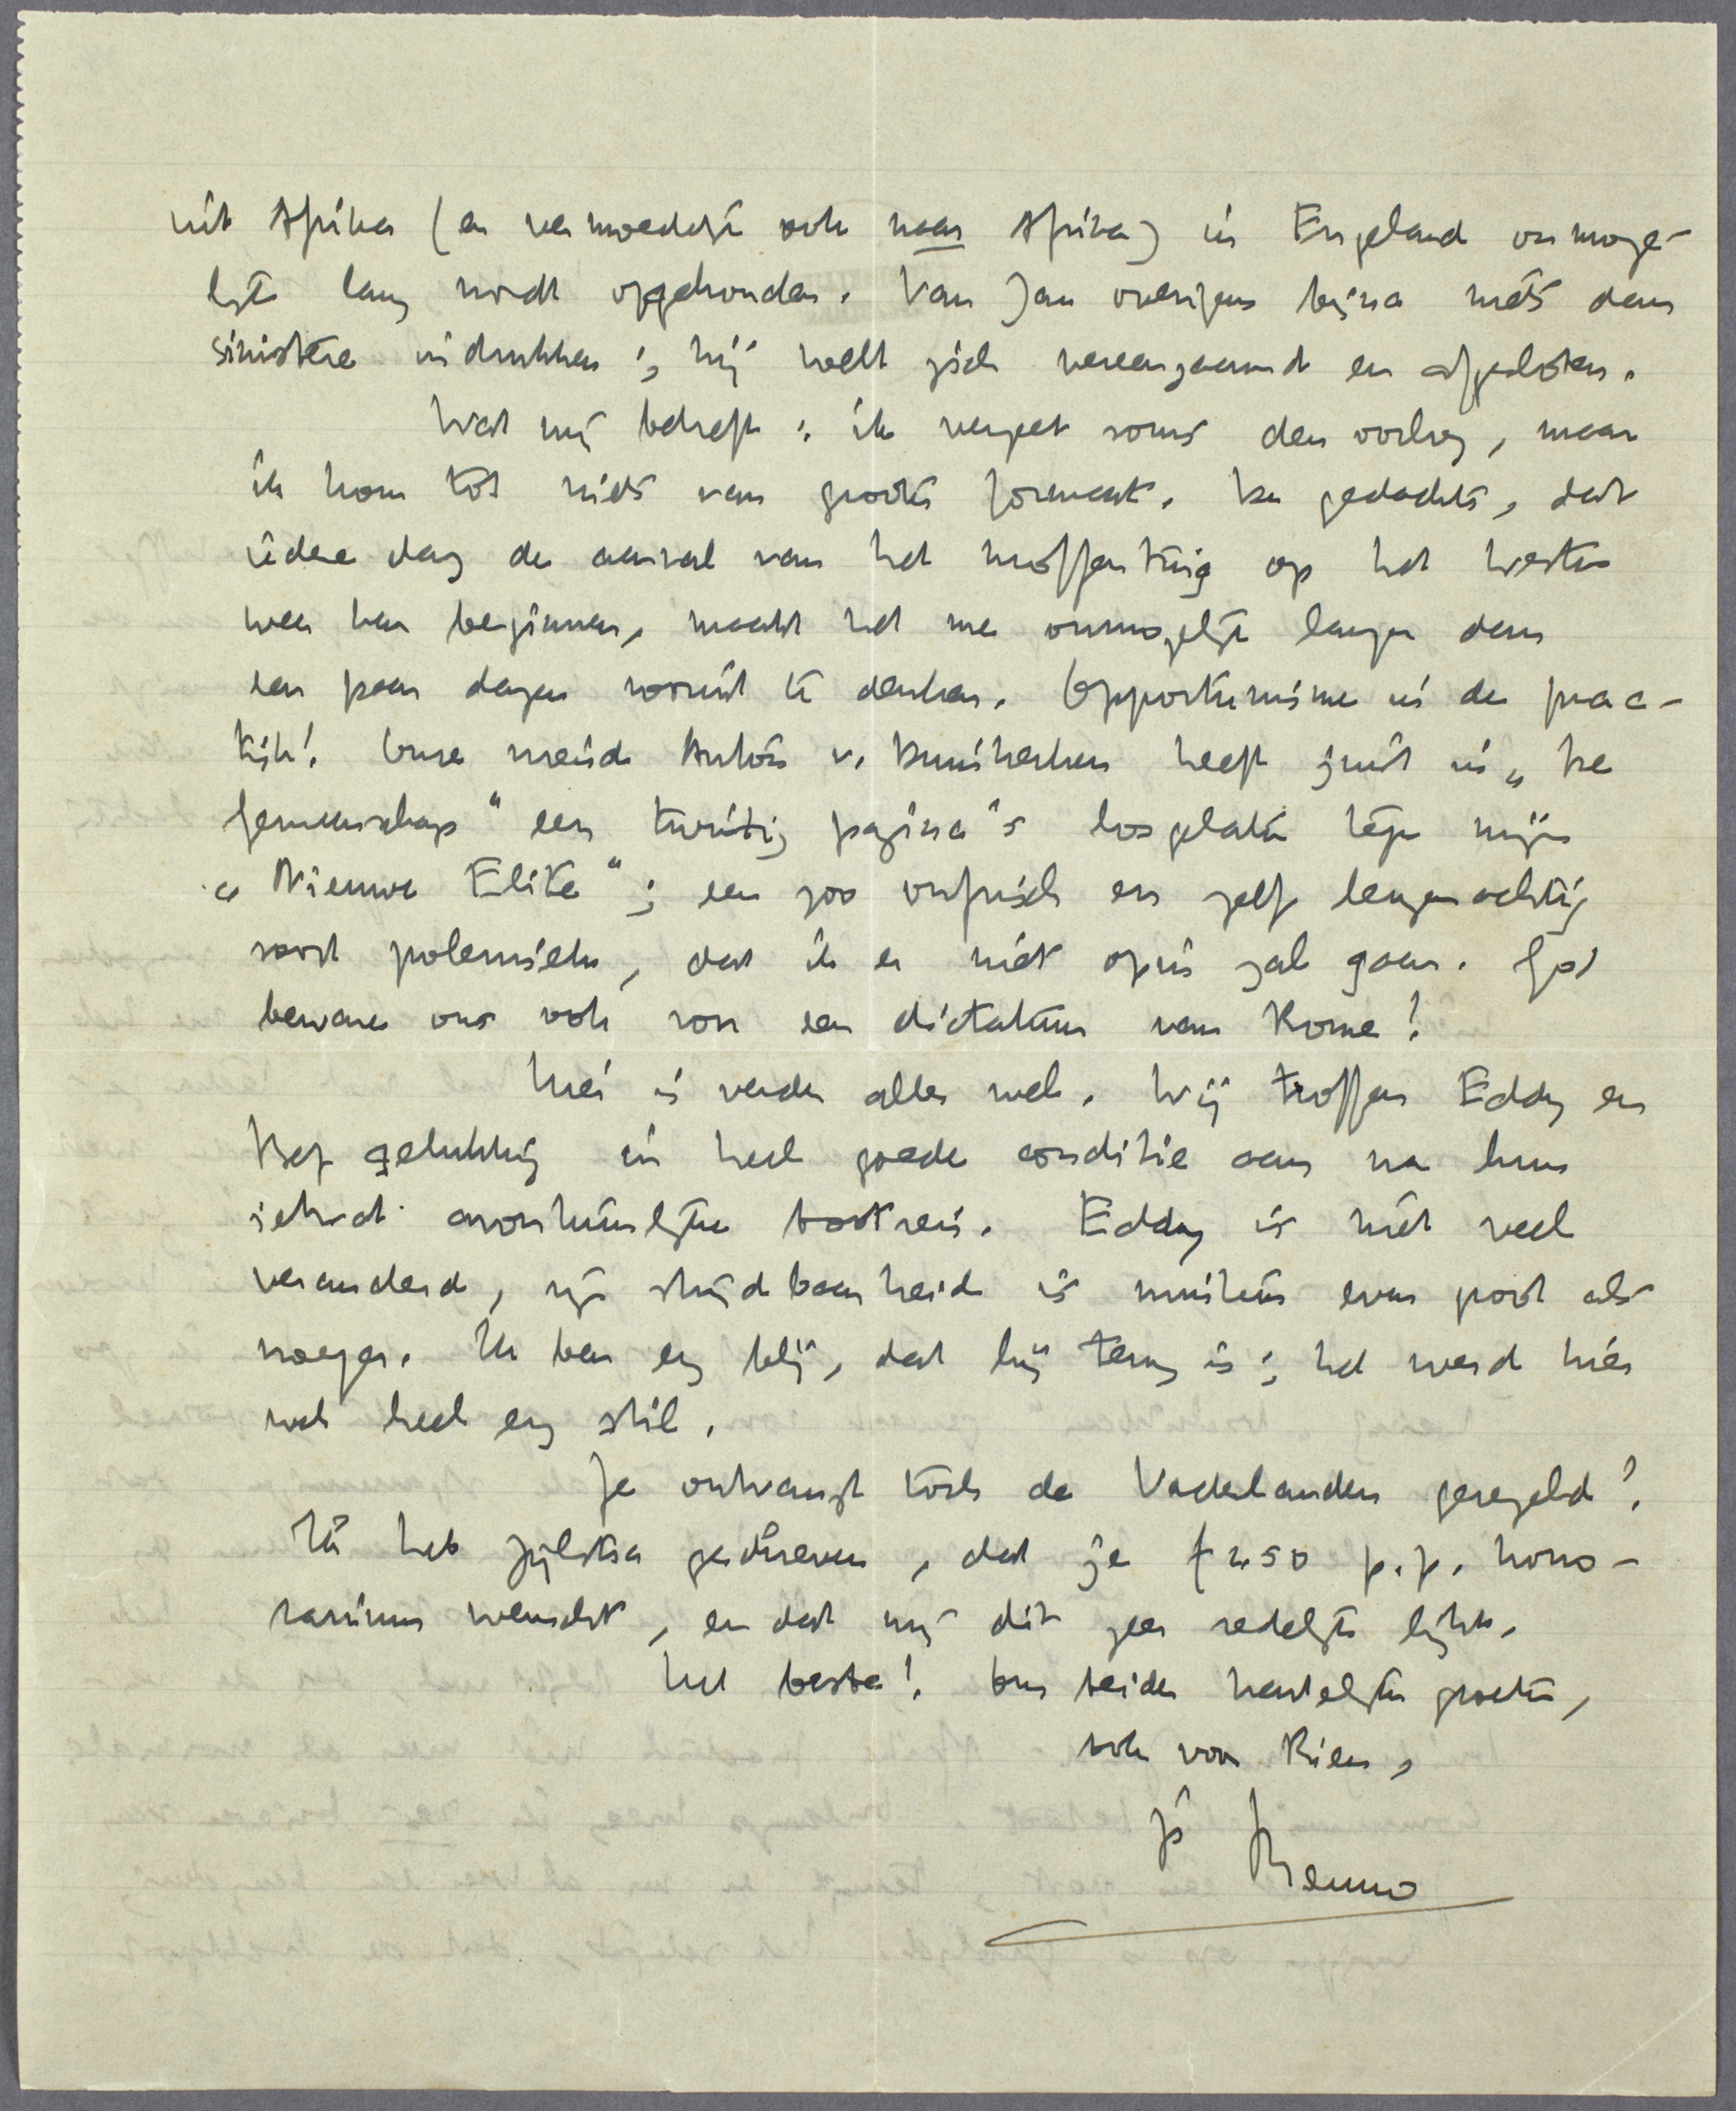 uit Afrika (en vermoedelijk ook naar Afrika) in Engeland onmoge-
lijk lang wordt opgehouden. Van Jan overigens bijna niets dan
sinistere indrukken; hij voelt zich vereenzaamd en afgesloten.
Wat mij betreft: ik vergeet soms den oorlog, maar
ik kom tot niets van groote formaat. De gedachte, dat
iedere dag de aanval van het moffentuig op het Westen
weer kan beginnen, maakt het me onmogelijk langer dan
een paar dagen vooruit te denken. Opportunisme in de prac-
tijk! Onze vriend Anton v. Duinkerken heeft juist in „De
Gemeenschap" een twintig pagina's losgelaten tegen mijn
„Nieuwe Elite"; een zoo onfrisch en zelf leugenachtig
soort polemiek, dat ik er niet op in zal gaan. God
beware ons ook voor een dictatuur van Rome!
Hier is verder alles wel. Wij troffen Eddy en
Bep gelukkig in heel goede conditie aan na hun
ietwat avontuurlijke bootreis. Eddy is niet veel
veranderd, zijn strijdbaarheid is minstens even groot als
vroeger. Ik ben erg blij, dat hij terug is; het werd hier
wel heel erg stil.
Je ontvangt toch de Vaderlanden geregeld?
Ik heb Zijlstra geschreven, dat je f 2.50 p.p. hono-
rarium wenscht, en dat mij dit zeer redelijk lijkt.
Het beste! Ons beider hartelijke groeten,
ook voor Rien,
je Menno